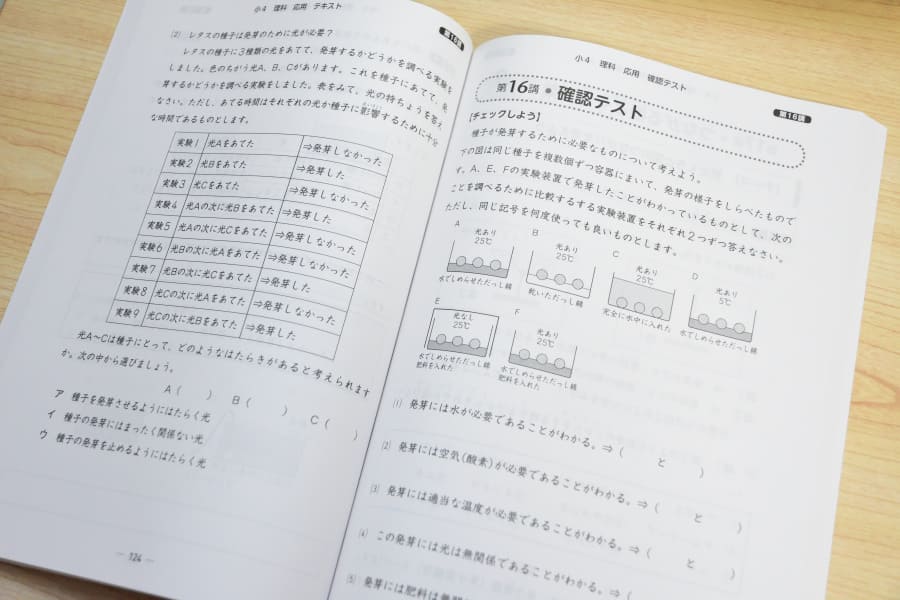 小4 理科 応用 テキスト
第16講
(2) レタスの種子は発芽のために光が必要?
レタスの種子に3種類の光をあてて、発芽するかどうかを調べる実験を
しました。色のちがう光A、B、Cがあります。これを種子にあてて、発
芽するかどうかを調べる実験をしました。表をみて、光の特ちょうを答え
なさい。ただし、あてる時間はそれぞれの光が種子に影響するために十分
な時間であるものとします。
実験1 光Aをあてた ⇒発芽しなかった
実験2 光Bをあてた ⇒発芽した
実験3 光Cをあてた ⇒発芽しなかった
実験4 光Aの次に光Bをあてた ⇒発芽した
実験5 光Aの次に光Cをあてた ⇒発芽しなかった
実験6 光Bの次に光Aをあてた ⇒発芽しなかった
実験7 光Bの次に光Cをあてた ⇒発芽した
実験8 光Cの次に光Aをあてた ⇒発芽しなかった
実験9 光Cの次に光Bをあてた ⇒発芽した
光A〜Cは種子にとって、どのようなはたらきがあると考えられます
か。次の中から選びましょう。
A( ) B( ) C( )
ア 種子を発芽させるようにはたらく光
イ 種子の発芽にはまったく関係ない光
ウ 種子の発芽を止めるようにはたらく光
― 124 ―
小4 理科 応用 確認テスト
第16講
第16講・確認テスト
[チェックしよう]
種子が発芽するために必要なものについて考えよう。
下の図は同じ種子を複数個ずつ容器にまいて、発芽の様子をしらべたもので
す。A、E、Fの実験装置で発芽したことがわかっているものとして、次の
ことを調べるために比較するする実験装置をそれぞれ2つずつ答えなさい。
ただし、同じ記号を何度使っても良いものとします。
A
光あり
25℃
水でしめらせただっし綿
B
光あり
25℃
乾いただっし綿
C
光あり
25℃
完全に水中に入れた
D
光あり
5℃
水でしめらせただっし綿
E
光なし
25℃
水でしめらせただっし綿
肥料を入れた
F
光あり
25℃
水でしめらせただっし綿
肥料を入れた
(1) 発芽には水が必要であることがわかる。⇒( と )
(2) 発芽には空気(酸素)が必要であることがわかる。⇒( と )
(3) 発芽には適当な温度が必要であることがわかる。⇒( と )
(4) この発芽には光は無関係であることがわかる。⇒(
(5) 発芽には肥料は無関